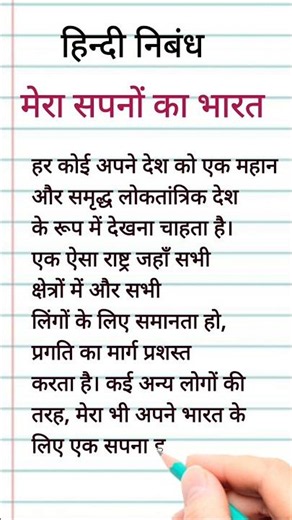 हिन्दी निबंध
मेरा सपनों का भारत
हर कोई अपने देश को एक महान
और समृद्ध लोकतांत्रिक देश
के रूप में देखना चाहता है।
एक ऐसा राष्ट्र जहाँ सभी
क्षेत्रों में और सभी
लिंगों के लिए समानता हो,
प्रगति का मार्ग प्रशस्त
करता है। कई अन्य लोगों की
तरह, मेरा भी अपने भारत के
लिए एक सपना